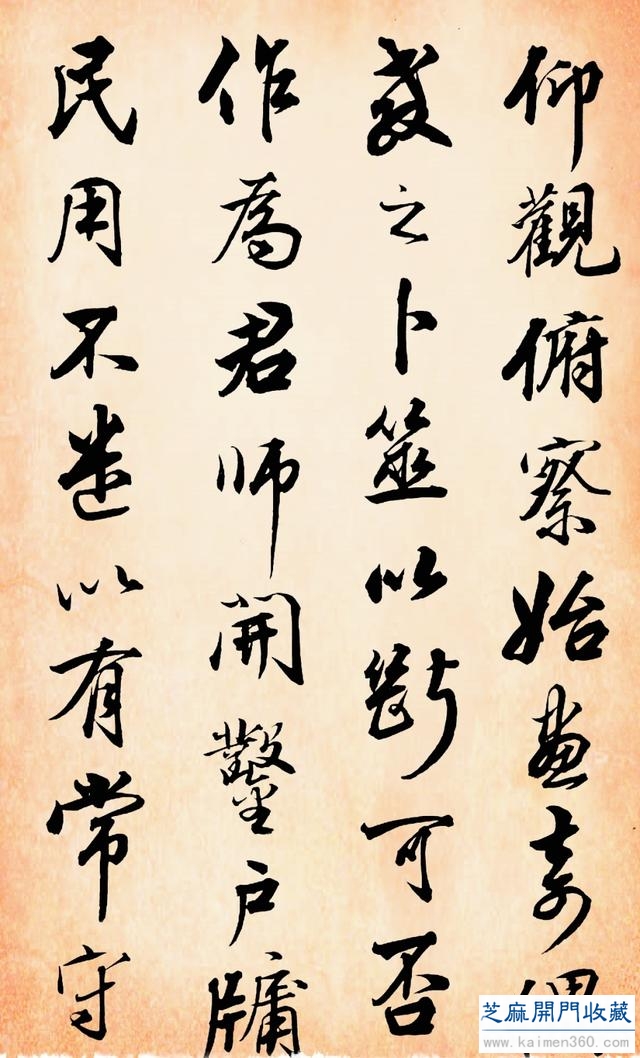 仰觀俯察始畫奇偶
教之卜筮以斷可否
作為君師開鑿戶牖
民用不迷以有常守
芝麻開門收藏
www.kaimen360.com